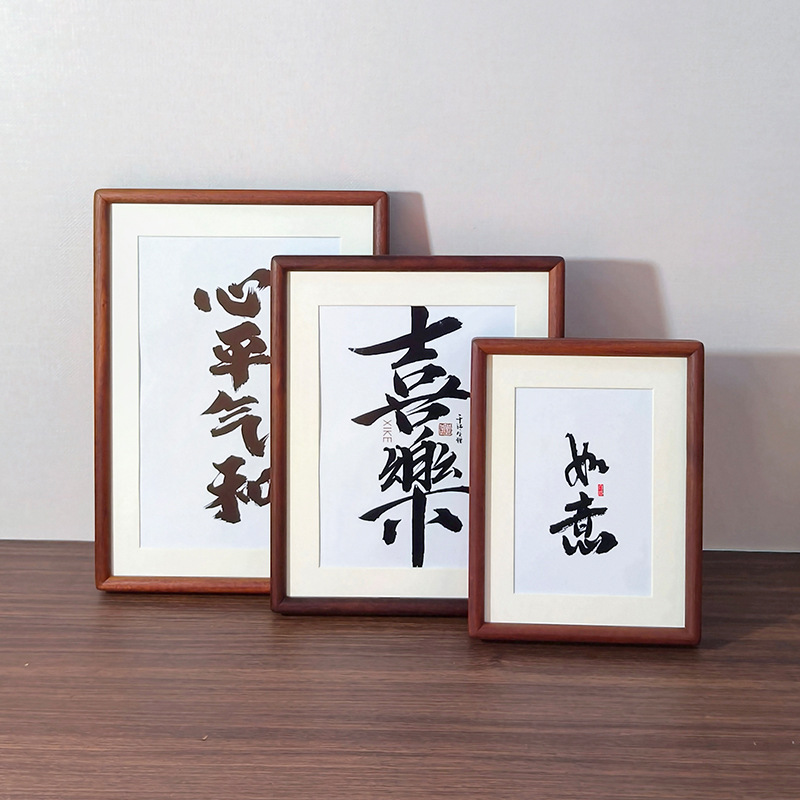 心平气和
喜樂
XIKE
如意